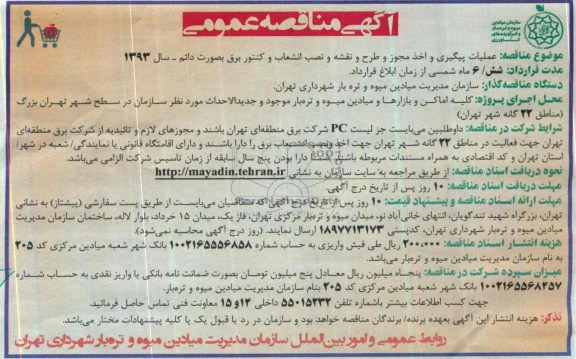 آگهی مناقصه عمومی
سازمان میادین
میوه و تره‌بار
و فرآورده‌های
کشاورزی
موضوع مناقصه: عملیات پیگیری و اخذ مجوز و طرح و نقشه و نصب انشعاب و کنتور برق بصورت دائم ـ سال ۱۳۹۳
مدت قرارداد: شش/ ۶ ماه شمسی از زمان ابلاغ قرارداد.
دستگاه مناقصه‌گذار: سازمان مدیریت میادین میوه و تره بار شهرداری تهران.
محل اجرای پروژه: کلیه اماکن و بازارها و میادین میوه و تره‌بار موجود و جدیدالاحداث مورد نظر سازمان در سطح شهر تهران بزرگ
(مناطق ۲۲ گانه شهر تهران)
شرایط شرکت در مناقصه: داوطلبین می‌بایست جز لیست PC شرکت برق منطقه‌ای تهران باشند و مجوزهای لازم و تائیدیه از شرکت برق منطقه‌ای
تهران جهت فعالیت در مناطق ۲۲ گانه شهر تهران جهت اخذ ونصب انشعاب برق را دارا باشند و دارای اقامتگاه قانونی یا نمایندگی/ شعبه در شهر/
استان تهران و کد اقتصادی به همراه مستندات مربوطه باشند. دارا بودن پنج سال سابقه از زمان تاسیس شرکت الزامی می‌باشد.
نحوه دریافت اسناد مناقصه: از طریق مراجعه به سایت سازمان به نشانی http://mayadin.tehran.ir
مهلت دریافت اسناد مناقصه: ۱۰ روز پس از تاریخ درج آگهی.
مهلت ارائه اسناد مناقصه و پیشنهاد قیمت: ۱۰ روز پس از تاریخ درج آگهی که متقاضیان می‌بایست از طریق پست سفارشی (پیشتاز) به نشانی
تهران، بزرگراه شهید تندگویان، انتهای خانی‌آباد نو، میدان میوه و تره‌بار مرکزی تهران، فاز یک، میدان ۱۵ خرداد، بلوار لاله، ساختمان سازمان مدیریت
میادین میوه و تره‌بار شهرداری تهران، کدپستی ۱۸۹۷۷۱۳۱۷۳ ارسال نمایند. (روز درج آگهی محاسبه نمی‌شود).
هزینه انتشار اسناد مناقصه: ۲۰۰.۰۰۰ ریال طی فیش واریزی به حساب شماره ۱۰۰۲۱۶۵۵۵۶۸۵۸ بانک شهر شعبه میادین مرکزی کد ۲۰۵
به نام سازمان مدیریت میادین میوه و تره‌بار می‌باشد.
میزان سپرده شرکت در مناقصه: پنجاه میلیون ریال معادل پنج میلیون تومان بصورت ضمانت نامه بانکی یا واریز نقدی به حساب شماره
۱۰۰۲۱۶۵۵۶۸۲۵۷ بانک شهر شعبه میادین مرکزی کد ۲۰۵ بنام سازمان مدیریت میادین میوه و تره‌بار.
جهت کسب اطلاعات بیشتر باشماره تلفن ۵۵۰۱۵۲۳۲ داخلی ۱۴و۱۵ معاونت فنی تماس حاصل فرمائید.
تذکر: هزینه انتشار این آگهی بعهده برنده/ برندگان مناقصه خواهد بود و سازمان در رد یا قبول یک یا کلیه پیشنهادات مختار می‌باشد.
روابط عمومی و امور بین‌الملل سازمان مدیریت میادین میوه و تره‌بار شهرداری تهران